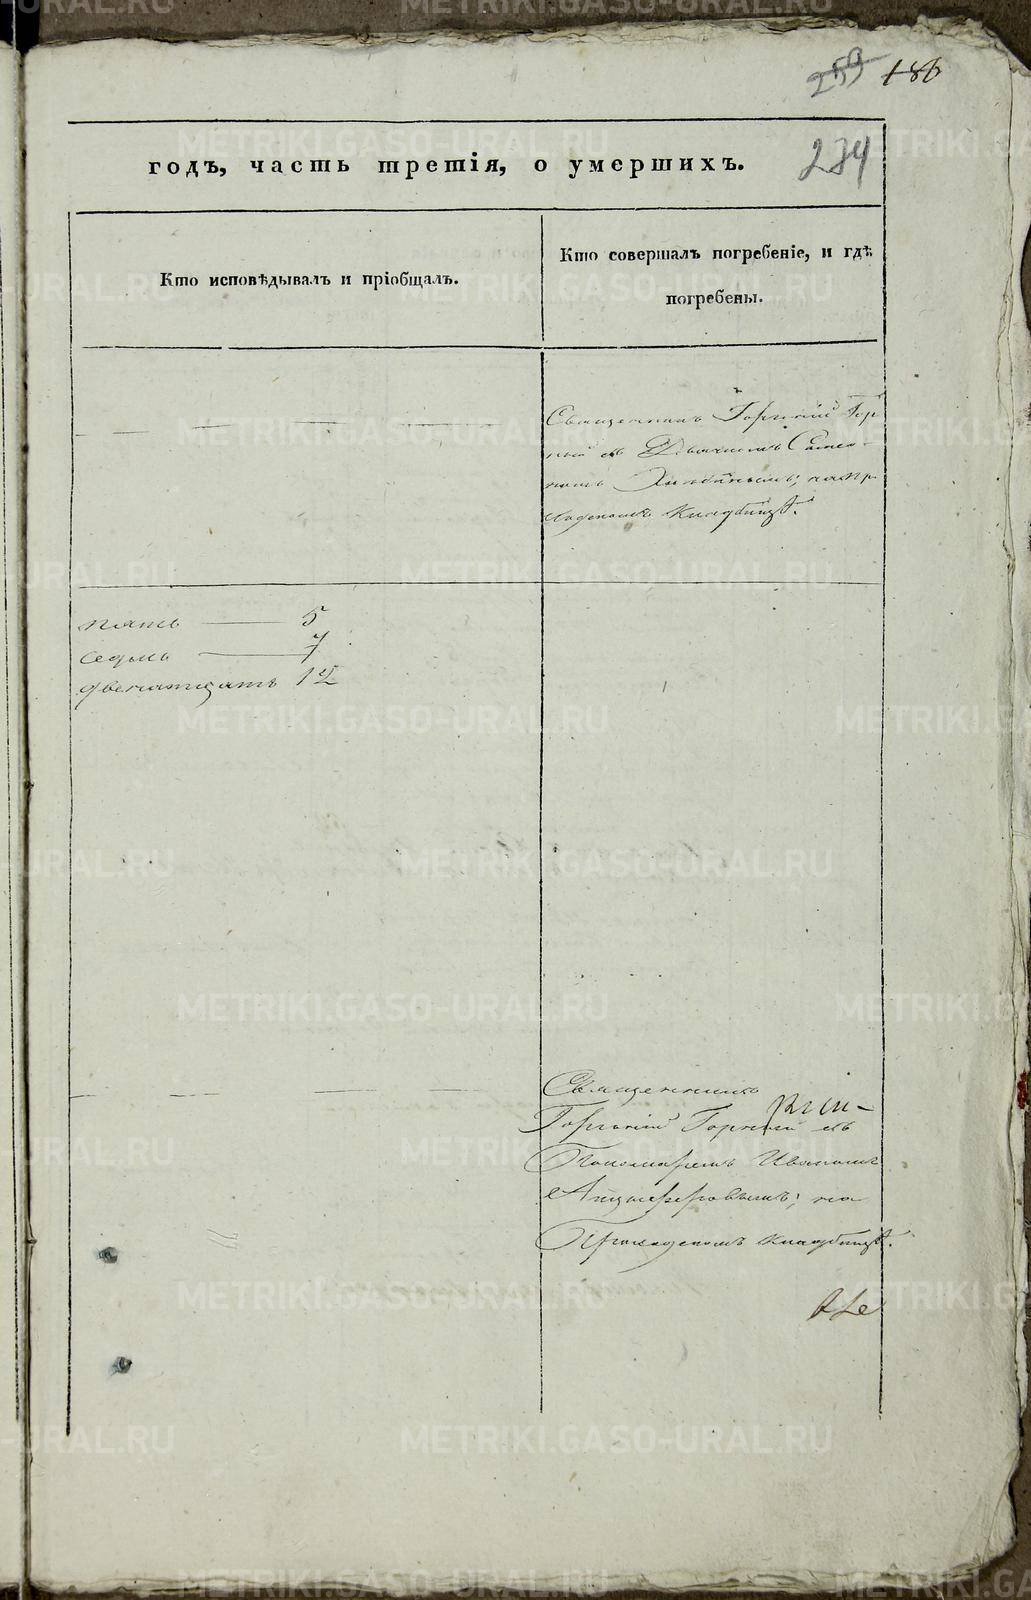 259 186
годъ, часть третія, о умершихъ. 234
Кто исповѣдывалъ и пріобщалъ.
Кто совершалъ погребеніе, и гдѣ
погребены.
Священникъ Георгий Гор
ный съ Дьячкомъ
на пр
иходскомъ кладбищѣ.
пять — 5
седмь — 7
двенатцать 12
Священникъ
Георгий Горный съ
Пономаремъ Иваномъ
Анцыферовымъ; на
Приходскомъ кладбищѣ.
METRIKI.GASO-URAL.RU